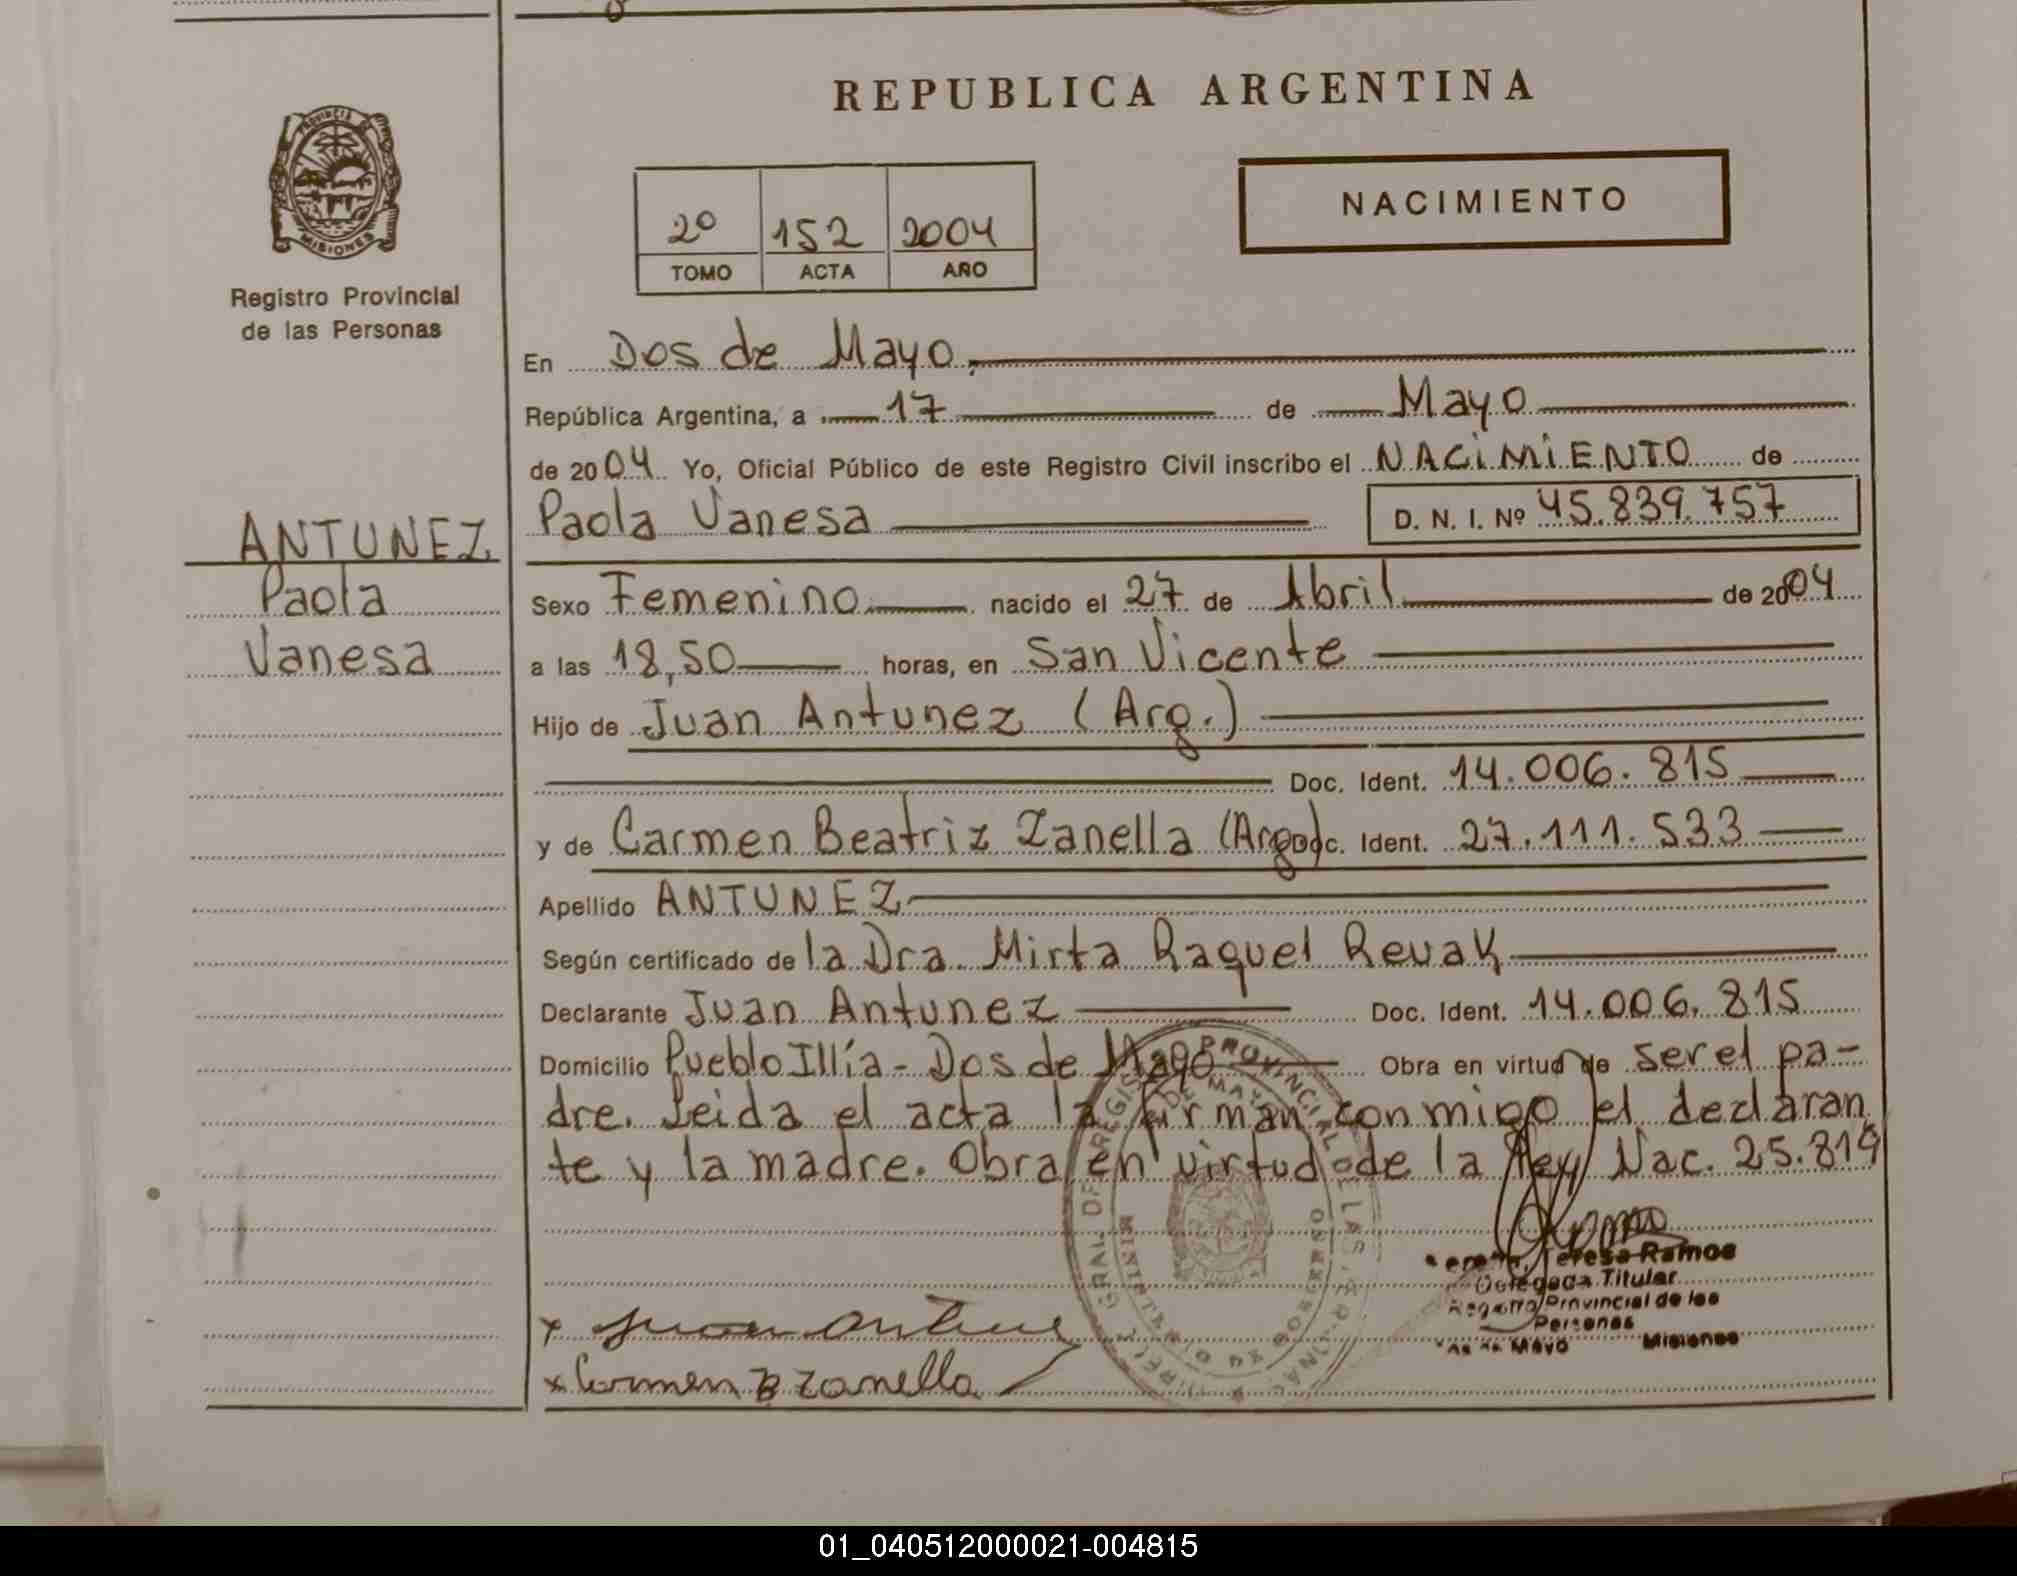 REPUBLICA ARGENTINA
PROVINCIA DE
MISIONES
Registro Provincial
de las Personas
2º 152 2004
TOMO ACTA AÑO
NACIMIENTO
En Dos de Mayo
República Argentina, a 17 de Mayo
de 2004 Yo, Oficial Público de este Registro Civil inscribo el NACIMIENTO de
Paola Vanesa D. N. I. Nº 45.839.757
ANTUNEZ
Paola
Vanesa
Sexo Femenino nacido el 27 de Abril de 2004
a las 18,50 horas, en San Vicente
Hijo de Juan Antunez (Arg.)
Doc. Ident. 14.006.815
y de Carmen Beatriz Zanella (Arg.) Doc. Ident. 27.111.533
Apellido ANTUNEZ
Según certificado de la Dra. Mirta Raquel Revak
Declarante Juan Antunez Doc. Ident. 14.006.815
Domicilio Pueblo Illía - Dos de Mayo Obra en virtud de ser el pa-
dre. Leida el acta la firman conmigo el declaran
te y la madre. Obra en virtud de la Ley Nac. 25.819
Teresa Ramos
Delegada Titular
Registro Provincial de las
Personas
Mayo Misiones
x Juan Antune
x Carmen B Zanella
01_040512000021-004815